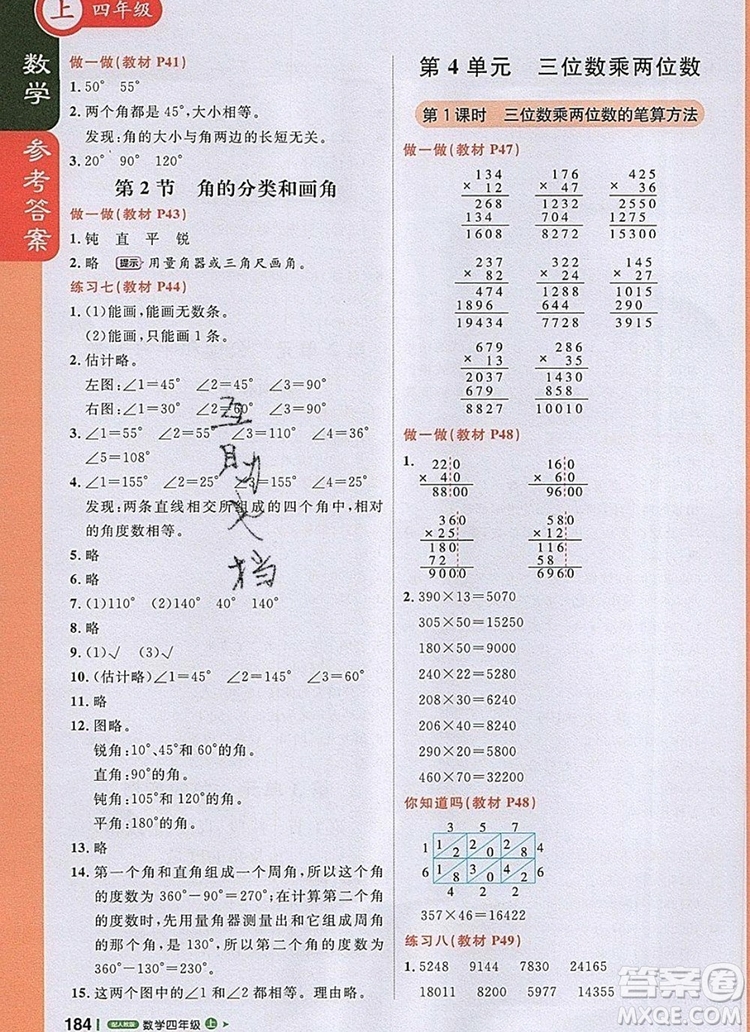 上 四年级
数学
参考答案
做一做(教材 P41)
1. 50° 55°
2. 两个角都是 45°,大小相等。
发现:角的大小与角两边的长短无关。
3. 20° 90° 120°
第 2 节 角的分类和画角
做一做(教材 P43)
1. 钝 直 平 锐
2. 略 提示 用量角器或三角尺画角。
练习七(教材 P44)
1. (1)能画,能画无数条。
(2)能画,只能画 1 条。
2. 估计略。
左图:∠1=45° ∠2=45° ∠3=90°
右图:∠1=30° ∠2=60° ∠3=90°
3. ∠1=55° ∠2=55° ∠3=110° ∠4=160°
∠5=108°
4. ∠1=155° ∠2=25° ∠3=155° ∠4=25°
发现:两条直线相交所组成的四个角中,相对
的角度数相等。
5. 略
6. 略
7. (1)110° 70° (2)140° 40° 140°
8. 略
9. (1)√ (3)√
10. (估计略)∠1=45° ∠2=60° ∠3=120°
11. 略
12. 图略。
锐角:10°、45°和 60°的角。
直角:90°的角。
钝角:105°和 120°的角。
平角:180°的角。
13. 略
14. 第一个角和直角组成一个周角,所以这个角
的度数为 360°-90°=270°;在计算第二个角
的度数时,先用量角器测量出和它组成周角
的那个角,是 130°,所以第二个角的度数为
360°-130°=230°。
15. 这两个图中的∠1 和∠2 相等。理由略。
184 配人教版 数学四年级 上
第 4 单元 三位数乘两位数
第 1 课时 三位数乘两位数的笔算方法
做一做(教材 P47)
134 176 425
× 12 × 47 × 36
268 1232 2550
134 704 1275
1608 8272 15300
237 82 24
× 82 × 24 × 25
474
1896
19434
679 286
× 13 × 35
2037 1430
679 858
8827 10010
做一做(教材 P48)
1.
220 160
× 40 × 60
8800 9600
360 580
× 25 × 12
180 116
72 58
9000 6960
2. 390×13=5070
305×50=15250
180×50=9000
240×28=6720
208×30=6240
206×40=8240
460×70=32200
你知道吗(教材 P48)
3 5 7
1 1 2 2 0 2 8 4
6 1 8 3 0 4 2 6
4 2 2
357×46=16422
练习八(教材 P49)
1. 5248 9144 7830 24255 14157
18011 8200 23400
互助文档
答案圈